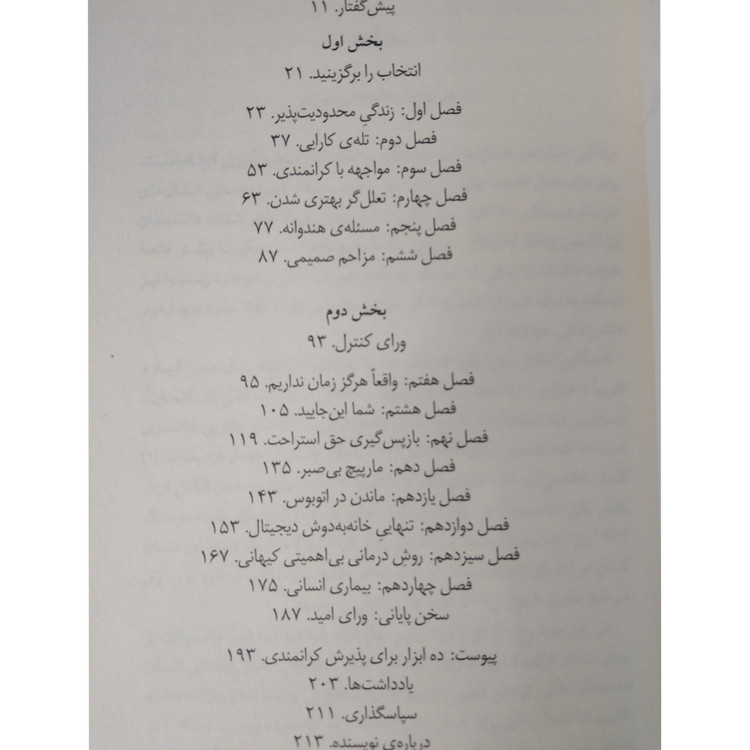 پیش‌گفتار. ۱۱
بخش اول
انتخاب را برگزینید. ۲۱
فصل اول: زندگیِ محدودیت‌پذیر. ۲۳
فصل دوم: تله‌ی کارایی. ۳۷
فصل سوم: مواجهه با کرانمندی. ۵۳
فصل چهارم: تعلل‌گر بهتری شدن. ۶۳
فصل پنجم: مسئله‌ی هندوانه. ۷۷
فصل ششم: مزاحم صمیمی. ۸۷
بخش دوم
ورای کنترل. ۹۳
فصل هفتم: واقعاً هرگز زمان نداریم. ۹۵
فصل هشتم: شما این‌جایید. ۱۰۵
فصل نهم: بازپس‌گیری حق استراحت. ۱۱۹
فصل دهم: مارپیچ بی‌صبر. ۱۳۵
فصل یازدهم: ماندن در اتوبوس. ۱۴۳
فصل دوازدهم: تنهاییِ خانه‌به‌دوش دیجیتال. ۱۵۳
فصل سیزدهم: روشِ درمانی بی‌اهمیتی کیهانی. ۱۶۷
فصل چهاردهم: بیماری انسانی. ۱۷۵
سخن پایانی: ورای امید. ۱۸۷
پیوست: ده ابزار برای پذیرش کرانمندی. ۱۹۳
یادداشت‌ها. ۲۰۳
سپاسگذاری. ۲۱۱
درباره‌ی نویسنده. ۲۱۳